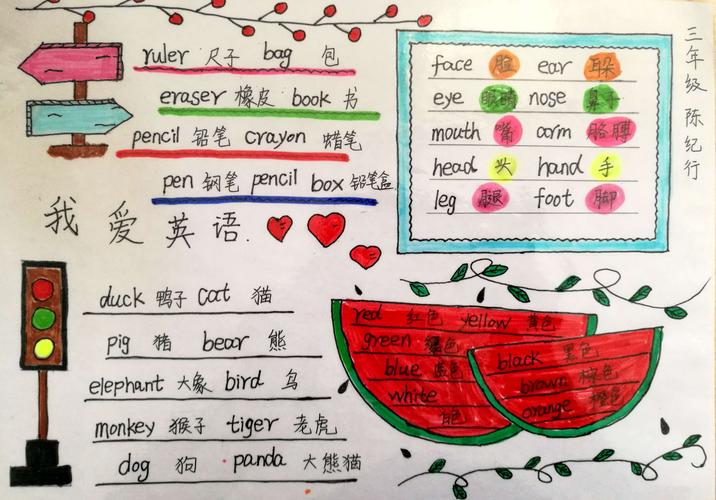 ruler 尺子 bag 包
eraser 橡皮 book 书
pencil 铅笔 crayon 蜡笔
pen 钢笔 pencil box 铅笔盒
我爱英语.
face 脸 ear 耳朵
eye 眼睛 nose 鼻子
mouth 嘴 arm 胳膊
head 头 hand 手
leg 腿 foot 脚
三年级 陈纪行
duck 鸭子 cat 猫
pig 猪 bear 熊
elephant 大象 bird 鸟
monkey 猴子 tiger 老虎
dog 狗 panda 大熊猫
red 红色 yellow 黄色
green 绿色
blue 蓝色
white
白色
black 黑色
brown 棕色
orange 橙色